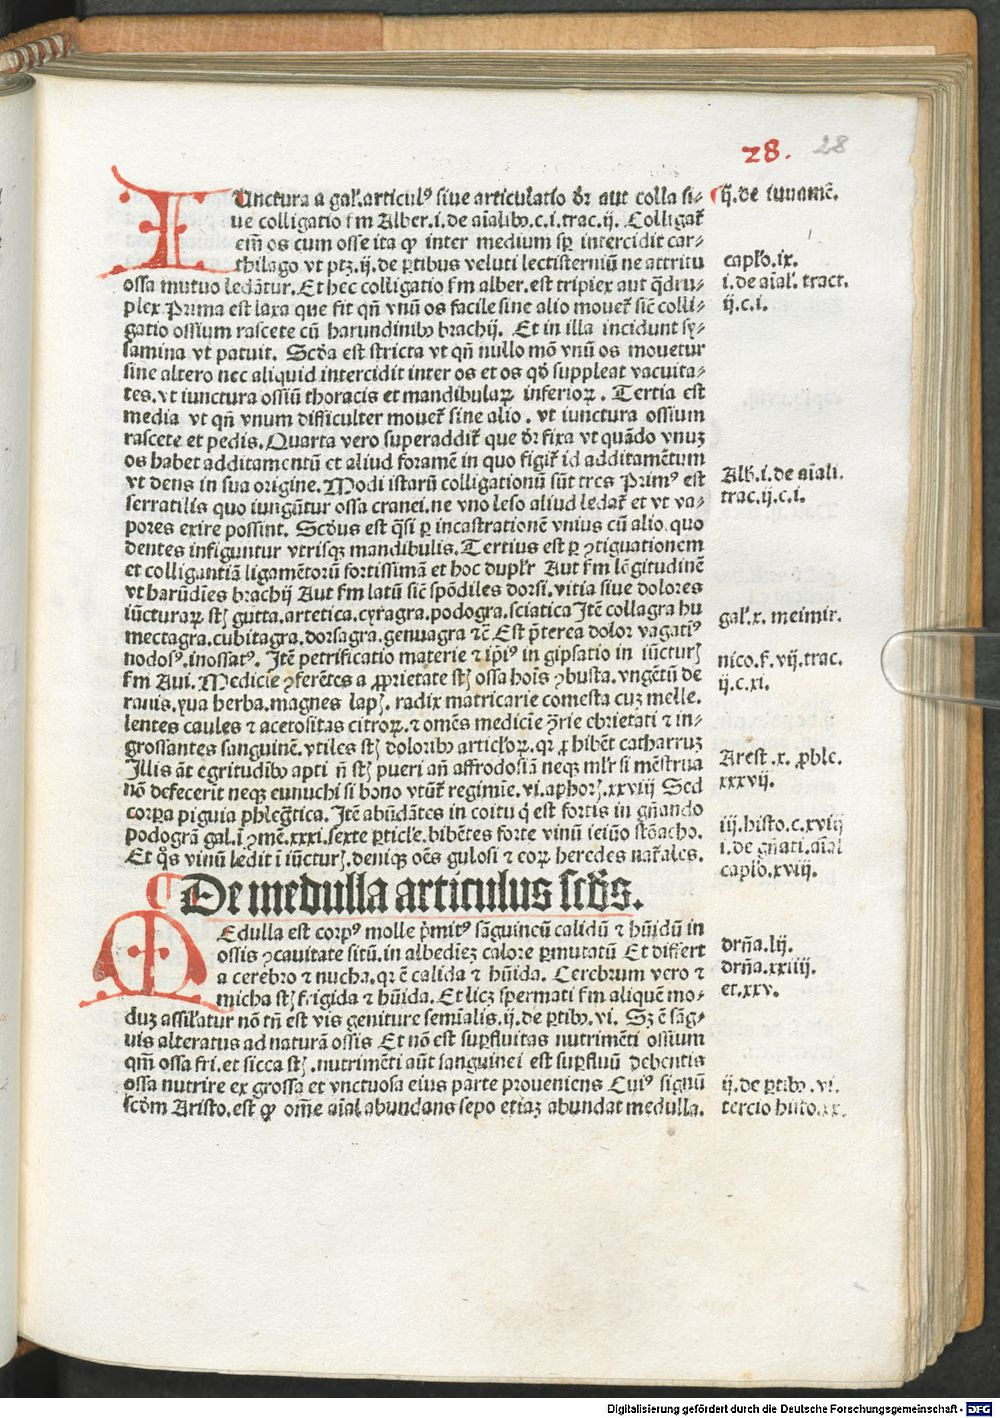 28. 28
IUnctura a gal̓.articulꝰ siue articulatio dr̄ aut colla si⸗
ue colligatio ẜm Alber.i.de aīalibꝫ.c.i.trac.ij. Colligat̄
em̄ os cum osse ita ꝙ inter medium sꝑ intercidit car⸗
thilago vt ptꝫ.ij.de ꝑtibus veluti lectisterniū ne attritu
ossa mutuo ledātur. Et hec colligatio ẜm alber.est triplex aut q̄dru⸗
plex Prima est laxa que fit qn̄ vnū os facile sine alio mouet̄ sic̄ colli⸗
gatio ossium rascete cū harundinibꝫ brachij. Et in illa incidunt sy⸗
samina vt patuit. Scd̄a est stricta vt qn̄ nullo mō vnū os mouetur
sine altero nec aliquid intercidit inter os et os qd̄ suppleat vacuita⸗
tes.vt iunctura ossiū thoracis et mandibulaꝝ inferioꝝ. Tertia est
media vt qn̄ vnum difficulter mouet̄ sine alio. vt iunctura ossium
rascete et pedis. Quarta vero superaddit̄ que dr̄ fixa vt quādo vnuꝫ
os habet additamentū et aliud foramē in quo figit̄ id additamētum
vt dens in sua origine. Modi istarū colligationū sūt tres Primꝰ est
serratilis quo iungūtur ossa cranei.ne vno leso aliud ledat̄ et vt va⸗
pores exire possint. Scd̄us est q̄si ꝑ incastrationē vnius cū alio.quo
dentes infiguntur vtrisqꝫ mandibulis. Tertius est ꝑ ꝯtiguationem
et colligantiā ligamētorū fortissimā et hoc dupl̓r Aut ẜm lēgitudinē
vt harūdīes brachij Aut ẜm latū sic̄ spōdiles dorsi.vitia siue dolores
iūcturaꝝ st̄ gutta.artetica.cyragra.podogra.sciatica Itē collagra hu
mectagra.cubitagra.dorsagra.genuagra ⁊c̄ Est p̄terea dolor vagatiꝰ
nodosꝰ.inossatꝰ. Itē petrificatio materie ⁊ ip̄iꝰ in gipsatio in iūcturꝭ
ẜm Aui. Medicīe ꝯferētes a ꝓprietate st̄ ossa hoīs ꝯbusta.vngētū de
ranis.yua herba.magnes lapꝭ. radix matricarie comesta cuꝫ melle.
lentes caules ⁊ acetositas citroꝝ.⁊ omēs medicīe ꝯ̄rie ebrietati ⁊ in⸗
grossantes sanguinē.vtiles st̄ doloribꝫ articl̓oꝝ.qꝛ ꝓhibēt catharruꝫ
Illis āt egritudībꝫ apti n̄ st̄ pueri an̄ affrodosiā neqꝫ ml̓r si mēstrua
nō defecerit neqꝫ eunuchi si bono vtūt̄ regimīe.vi.aphorꝭ.xxviij Sed
corꝑa piguia phlegm̄tica. Itē abūdātes in coitu q̓ est fortis in gn̄ando
podogrā gal.ī ꝯmē.xxxi.sexte ꝑticle.bibētes forte vinū ieiūo stōacho.
Et q̓s vinū ledit ī iūcturꝭ.deniqꝫ oēs gulosi ⁊ eoꝝ heredes nat̄ales.
De medulla articulus scd̄s.
MEdulla est corpꝰ molle p̄mitꝰ sāguineū calidū ⁊ hūidū in
ossis ꝯcauitate sitū.in albediez calore ꝑmutatū Et differt
a cerebro ⁊ nucha.qꝛ ē calida ⁊ hūida. Cerebrum vero ⁊
micha st̄ frigida ⁊ hūida. Et licꝫ spermati ẜm aliquē mo⸗
duꝫ assil̓atur nō tn̄ est vis geniture semīalis.ij.de ꝑtibꝫ.vi. Sꝫ ē sāg⸗
uis alteratus ad naturā ossis Et nō est suꝑfluitas nutrimēti ossium
qm̄ ossa fri.et sicca st̄.nutrimēti aūt sanguinei est suꝑfluū debentis
ossa nutrire ex grossa et vnctuosa eius parte proueniens Cuiꝰ signū
scd̄m Aristo.est ꝙ om̄e aīal abundans sepo etiaꝫ abundat medulla.
ij.de iuuamē.
capl̓o.ix.
i.de aīal̓.tract.
ij.c.i.
Alb̓.i.de aīali.
trac.ij.c.i.
gal̓.x. meimir.
nico.f.vij.trac.
ij.c.xi.
Arest.x.ꝓble.
xxxvij.
iij.histo.c.xviij
i.de gn̄ati.aīal
capl̓o.xviij.
drn̄a.lij.
drn̄a.xxiiij.
et.xxv.
ij.de ꝑtibꝫ.vi.
tercio histo.xx.
Digitalisierung gefördert durch die Deutsche Forschungsgemeinschaft - DFG